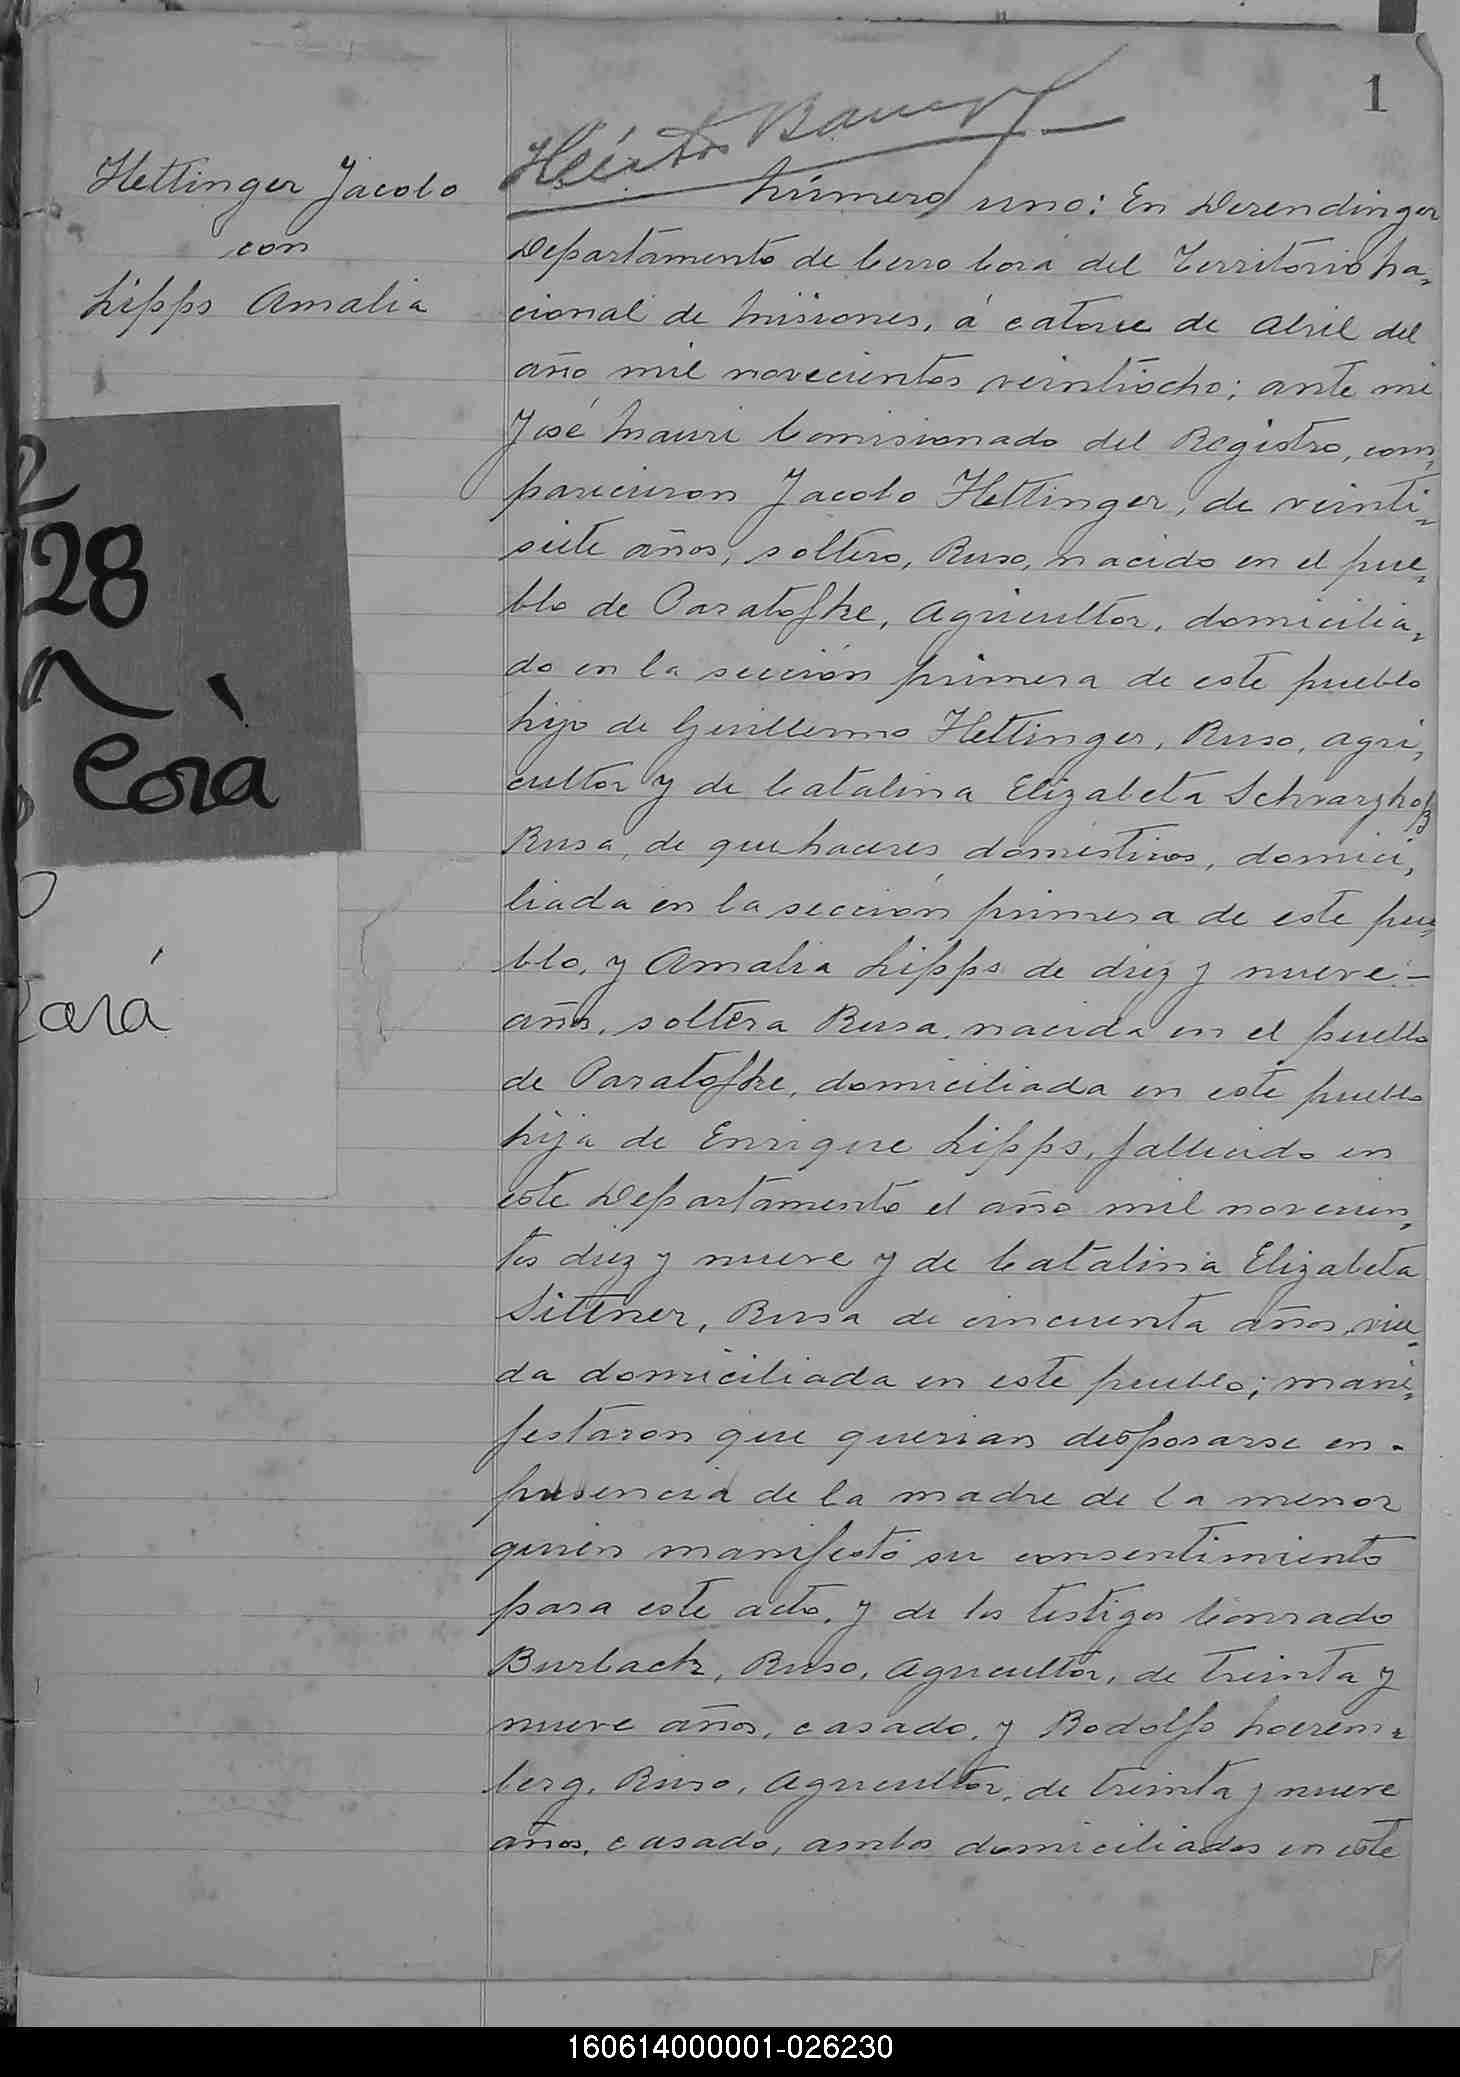 1
Héctor Bauer
Hettinger Jacobo
con
Lipps Amalia
28
Corà
Corá
Número uno: En Derendinger
Departamento de Cerro Corá del Territorio Na-
cional de Misiones, á catorce de Abril del
año mil novecientos veintiocho; ante mi
José Mauri Comisionado del Registro, com-
parecieron Jacobo Hettinger, de veinti-
siete años, soltero, Ruso, nacido en el pue-
blo de Paratofke, Agricultor, domicilia-
do en la sección primera de este pueblo
hijo de Guillermo Hettinger, Ruso, agri-
cultor y de Catalina Elizabeta Schvarzkoff
Rusa, de quehaceres domesticos, domici-
liada en la sección primera de este pue-
blo, y Amalia Lipps de diez y nueve
años, soltera Rusa, nacida en el pueblo
de Paratofke, domiciliada en este pueblo
hija de Enrique Lipps, fallecido en
este Departamento el año mil novecien-
tos diez y nueve y de Catalina Elizabeta
Sittner, Rusa de cincuenta años, viu-
da domiciliada en este pueblo; mani-
festaron que querian desposarse en
presencia de la madre de la menor
quien manifestó su consentimiento
para este acto, y de los testigos Conrado
Burback, Ruso, Agricultor, de treinta y
nueve años, casado, y Rodolfo Noerem-
berg, Ruso, Agricultor, de treinta y nueve
años, casado, ambos domiciliados en este
160614000001-026230